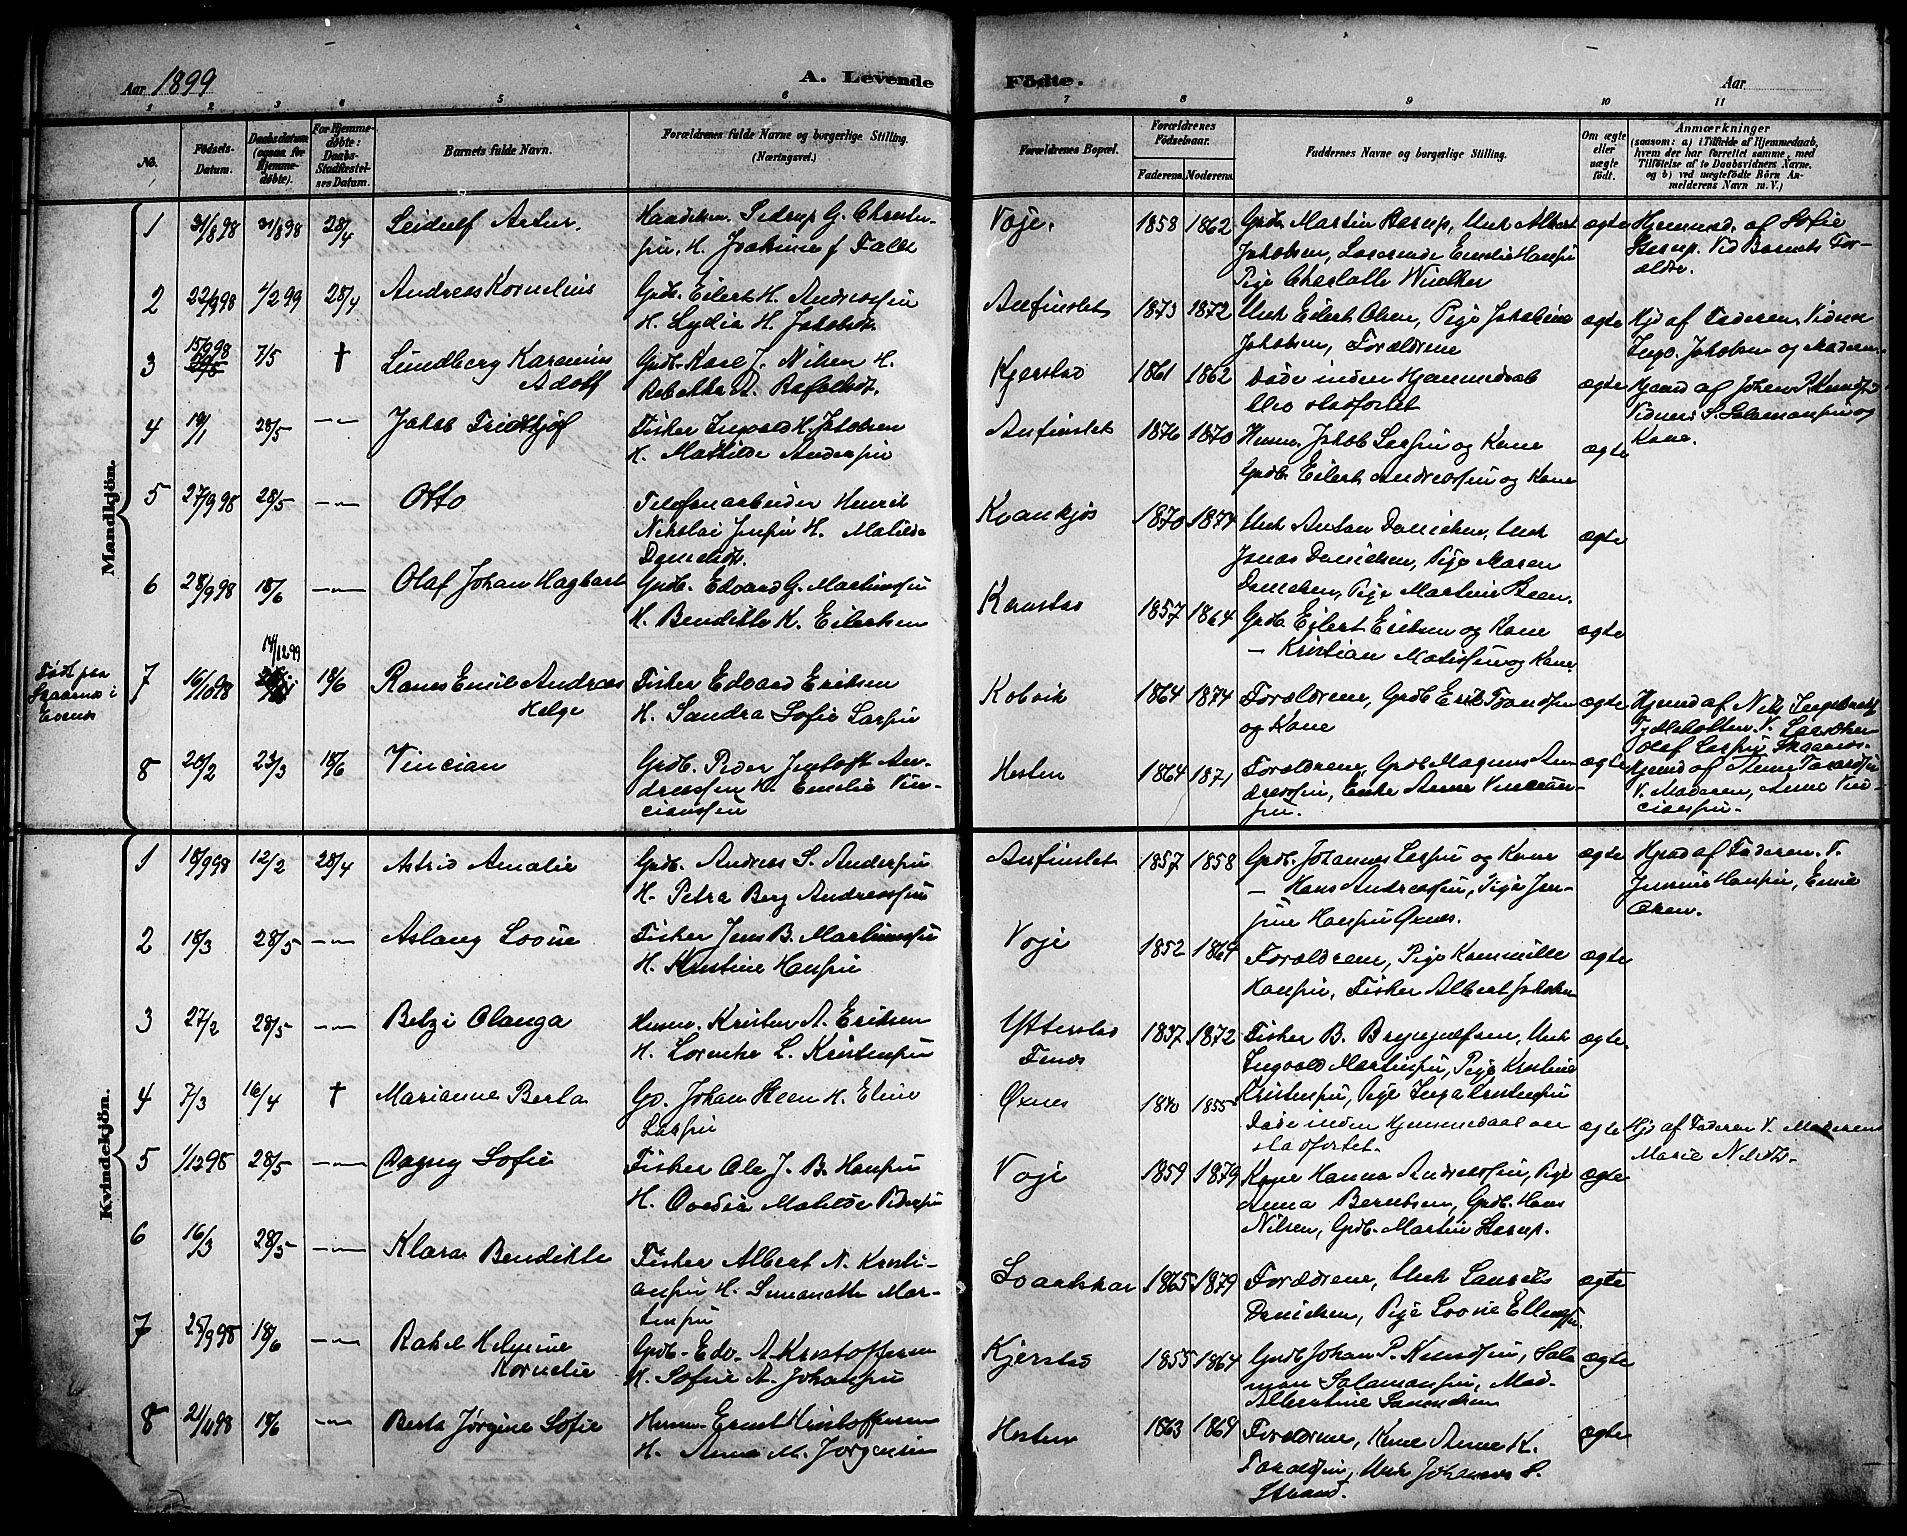 Aar 1899
A. Levende
Födte.
Aar
1 2 3 4 5 6 7 8 9 10 11
No.
Födsels-Datum.
Daabsdatum (ogsaa for Hjemme-döbte).
For Hjemme-döbte: Daabs-Stadfæstelses Datum.
Barnets fulde Navn.
Forældrenes fulde Navne og borgerlige Stilling.
(Næringsvei.)
Forældrenes Bopæl.
Forældrenes Födselsaar.
Faderens. Moderens.
Faddernes Navne og borgerlige Stilling.
Om ægte eller uægte födt.
Anmærkninger
(saasom: a) i Tilfælde af Hjemmedaab, hvem der har forrettet samme, med Tilföielse af to Daabsvidners Navne, og b) ved uægtefödte Börn Anmelderens Navn m. V.)
Mandkjön.
1 31/8 98 31/8 98 28/4 Leidulf Artur.
Pedersen G.
H. Joakime f Falk
Voje. 1858 1862 Grdb. Martin Sterup, Unk Albert
Jakobsen, Emelie Hansen
Pige
ægte Hjemmed. af Sofie
Sterup. Vid Barnets For-
ældre.
2 22/9 98 1/2 99 28/4 Andreas Kornelius
Grdb. Eilert H. Andreassen
H. Lydia H. Jakobsdt.
Anfinslet 1873 1872 Unk Eilert Olsen, Pige Jakobine
Jakobsen, Forældrene
ægte Hjd af Faderen. Vidner
Ingv. Jakobsen og Moderen
3 15/6 98 7/5 † Lundberg Karenius
Adolf
Grdb. Karl J. Nilsen H.
Rebekka A. Rafaelsdt.
Kjerstad 1861 1862 Døde inden Hjemmedaab
blev stadfæstet
ægte Hjemd af Johan P. Knudsen
Vidner S. Salamonsen og
Kone.
4 19/1 28/5 —"— Jakob Fridthjof
Fisker Ingvald H. Jakobsen
H. Mathilde Andersen
Anfinslet 1876 1870 Husm. Jakob Larsen og Kone
Grdb. Eilert Andreassen og Kone
ægte
5 27/9 98 28/5 —"— Otto
Telefonarbeider Henrik
Nikolai Jensen H. Matilde
Danielsdt.
Kvankjos 1870 1874 Unk Anton Danielsen, Unk
Jonas Danielsen, Pige Maren
Danielsen, Pige Martine Steen.
ægte
6 28/9 98 18/6 —"— Olaf Johan Hagbart
Grdb. Edvard G. Martinussen
H. Bendikte K. Eilertsen
Kanstad 1857 1864 Grdb. Eilert Eriksen og Kone
— Kristian Matissen og Kone
ægte
Født paa
Skaanes i
Evenes
7 16/10 98 14/12 99 18/6 Rames Emil Andreas
Helge
Fisker Edvard Eriksen
H. Sandra Sofie Larsen
Kobvik 1864 1874 Forældrene, Grdb Erik TRondsen
og Kone
ægte Hjemd af Nils Ingebrigts
Olaf Larsen Skaanes.
8 20/2 23/3 18/6 Vincian
Grdb. Peder Jentoft An-
dreassen H. Emelie Vin-
cianssen
Hesten 1864 1871 Forældrene, Grdb Magnus An-
dreassen, Enke Anne Vincian-
sen.
ægte Hjemd af Anne Taraldsen
V. Moderen, Anne Vin-
ciansen.
Kvindekjön.
1 18/9 98 12/2 28/4 Astrid Amalie
Grdb. Andreas S. Andersen
H. Petra Berg Andreassen
Anfinslet 1857 1858 Grdb. Johannes Larsen og Kone
— Hans Andreassen, Pige Jen-
sine Hansen Øxnes.
ægte Hjemd af Faderen. V.
Jensine Hansen, Emil
Olsen.
2 18/3 28/5 —"— Aslaug Lovise
Fisker Jens B. Martinussen
H. Kristine Hansen
Voje 1852 1864 Forældrene, Pige Kammille
Hansen, Fisker Albert Jakobsen
ægte
3 27/2 28/5 —"— Betzi Olanga
Husm. Kristen A. Eriksen
H. Lorntse L. Kristensen
Ytterstad
Fines
1837 1872 Fisker B. Brynjulfsen, Unk
Ingvald Martinsen, Pige Kristine
Kristensen, Pige Inga Kristensen
ægte.
4 7/3 16/4 † Marianne Berta
Go. Johan Steen H. Eline
Larsen
Øxnes 1840 1855 Døde inden Hjemmedaab var
stadfæstet.
ægte Hjd af Faderen V. Moderen
Marie Nilsdt.
5 1/12 98 28/5 —"— Dagny Sofie
Fisker Ole J. B. Hansen
H. Ovedia Matilde Pedersen
Voje 1859 1879 Kone Hanna Andreassen, Pige
Anna Berntsen, Grdb. Hans
Nilsen, Grdb. Martin Sterup.
ægte
6 16/3 28/5 —"— Klara Bendikte
Fisker Albert N. Kristi-
ansen H. Simonette Mar-
tinsen
1865 1879 Forældrene, Unk Laurits
Danielsen, Pige Lovise Ellingsen.
ægte
7 25/9 98 18/6 —"— Rakel Helmine
Kornelie
Grdb. Edv. A. Kristoffersen
H. Sofie A. Johansen
Kjerstad 1855 1864 Grdb Johan P. Knudsen, Salo
mon Salamonsen, Mad.
Albertine
ægte
8 21/11 98 18/6 —"— Berta Jørgine Sofie
Husm. Ernst Kristoffersen
H. Anna M. Jörgensen
Hesten 1863 1869 Forældrene, Kone Anne K.
Taraldsen, Unk Johannes S.
Strand.
ægte